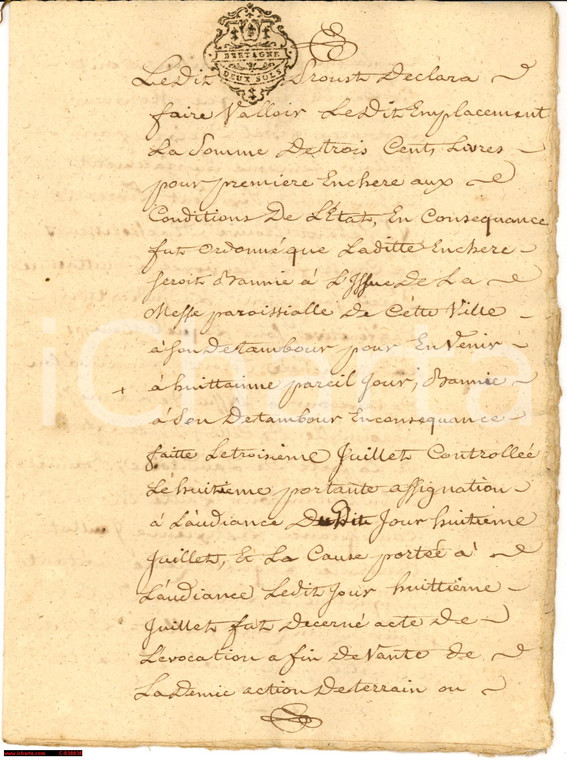 BRETAGNE
DEUX SOLS
Ledit Proust Declara
faire Valloir Ledit Emplacement
La Somme De trois Cents Livres
pour premiere Enchere aux
Conditions De L'Etat, En Consequance
fut ordonné que Laditte Enchere
seroit Bannie à L'Issue De La
Messe paroissialle De Cétte Ville
à Son De tambour pour En Venir
à huittainne pareil Jour, Bannie
à Son De tambour En consequance
faitte Le troisième Juillet Controllée
Le huitième portante assignation
à L'audiance Dudit Jour huitième
Juillet, Et La Cause portée à
L'audiance Ledit Jour huittième
Juillet fut Decerné acte De
L'evocation a fin De Vante de
La Demie action De terrain ou
iCharta
www.icharta.com